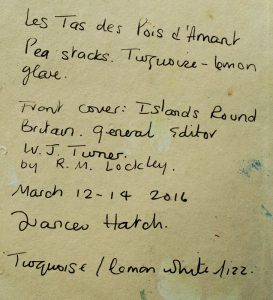 Les Tas des Pois d'Amant
Pea stacks. Turquoise-lemon
glare.
Front cover: Islands Round
Britain. General Editor
W.J. Turner.
by R.M. Lockley.
March 12-14 2016
Frances Hatch.
Turquoise / lemon white fizz.